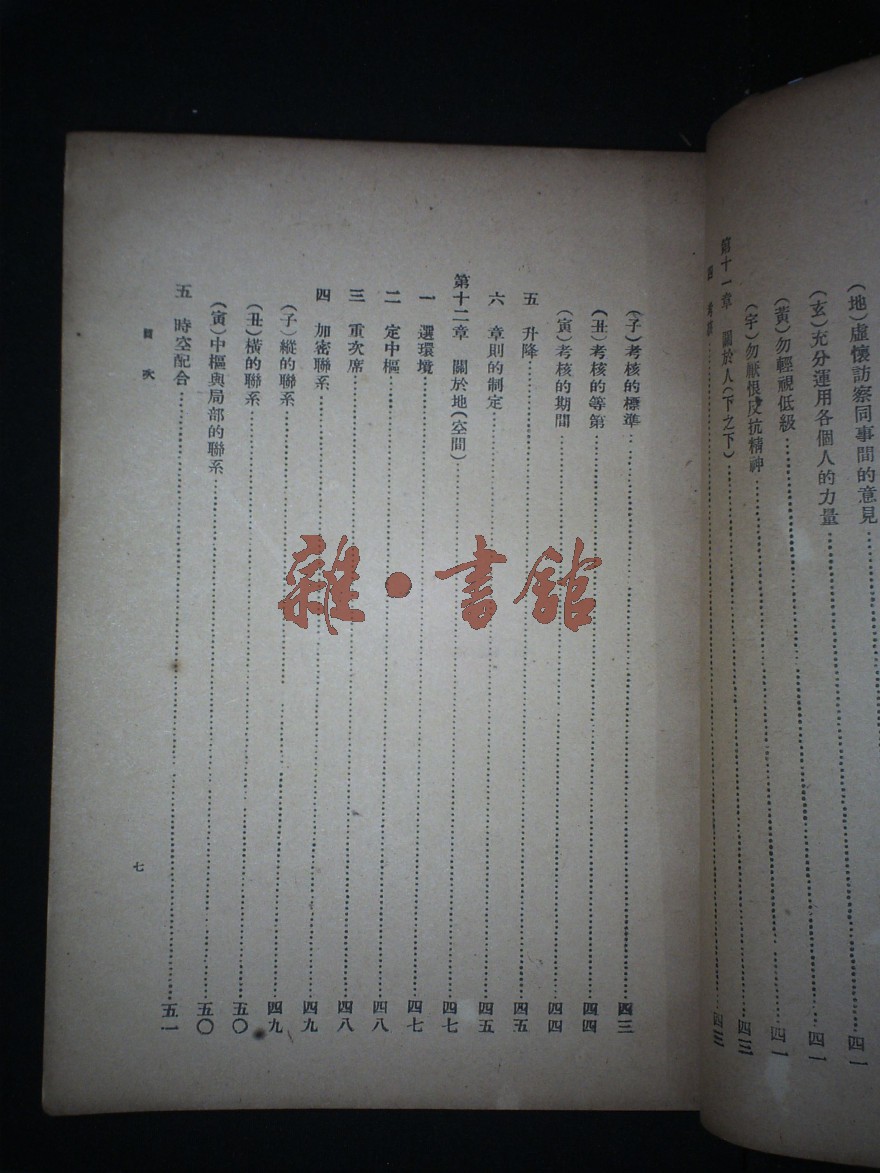 (地)虛懷訪察同事間的意見……四一
(玄)充分運用各個人的力量……四一
(黃)勿輕視低級……四一
(宇)勿厭恨反抗精神……四三
第十一章 關於人(下之下)……四三
四
(子)考核的標準……四三
(丑)考核的等第……四四
(寅)考核的期間……四四
五 升降……四五
六 章則的制定……四五
第十二章 關於地(空間)……四七
一 選環境……四七
二 定中樞……四八
三 重次席……四八
四 加密聯系……四九
(子)縱的聯系……四九
(丑)橫的聯系……五〇
(寅)中樞與局部的聯系……五〇
五 時空配合……五一
目次
七
雜·書館